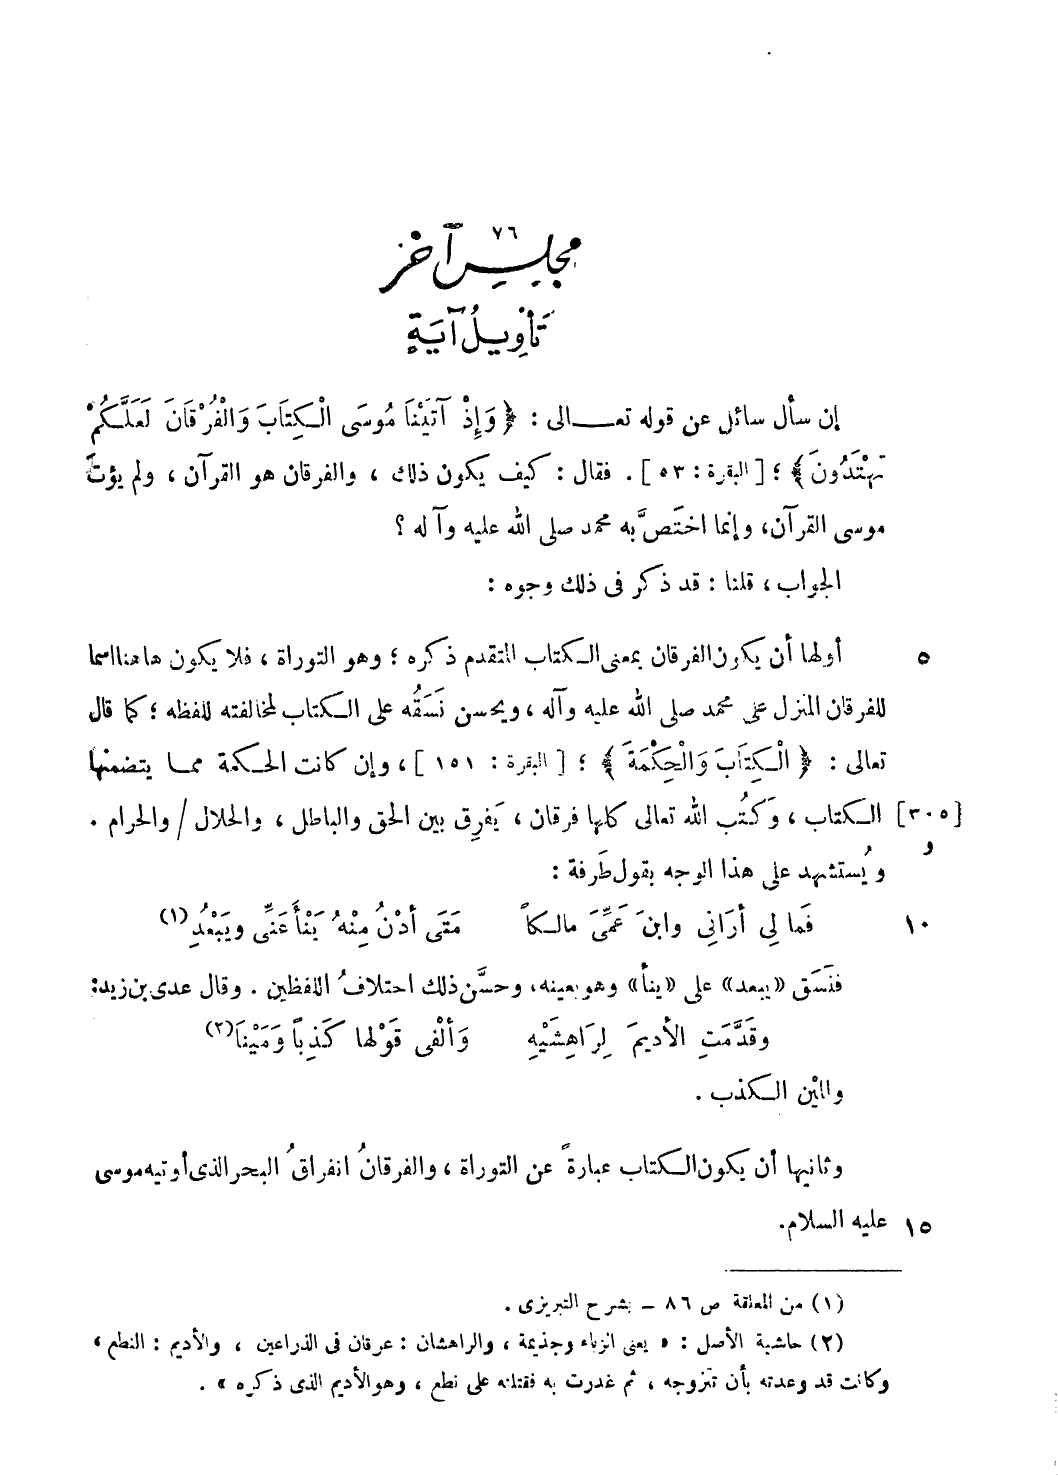 ٧٦
مجلس آخر
تَأوِيلُ آيَةٍ
إن سأل سائل عن قوله تعـــالى : ﴿ وَإِذْ آتَيْنَا مُوسَى الْكِتَابَ وَالْفُرْقَانَ لَعَلَّكُمْ
تَهْتَدُونَ﴾ ؛ [البقرة : ٥٣] . فقال : كيف يكون ذلك ، والفرقان هو القرآن ، ولم يؤتَ
موسى القرآن، وإنما اختَصَّ به محمد صلى الله عليه وآله ؟
الجواب ، قلنا : قد ذكر فى ذلك وجوه :
أولها أن يكون الفرقان بمعنى الكتاب المتقدم ذكره ؛ وهو التوراة ، فلا يكون هاهنا اسما ٥
للفرقان المنزل على محمد صلى الله عليه وآله ، ويحسن نَسَقُه على الكتاب لمخالفته للفظه ؛ كما قال
تعالى : ﴿ الْكِتَابَ وَالْحِكْمَةَ ﴾ ؛ [البقرة : ١٥١] ، وإن كانت الحكمة مما يتضمنها
[٣٠٥] الكتاب ، وَكُتُب الله تعالى كلها فرقان ، يَفرِق بين الحق والباطل ، والحلال / والحرام .
و
ويُستشهد على هذا الوجه بقول طَرفة :
فَما لِي أرَانِي وابنَ عَمِّيَ مالكاً مَتَى أدْنُ مِنْهُ يَنْأَ عَنِّى ويَبْعُدِ(١) ١٠
فنَسَق «يبعد» على «ينأ» وهو بعينه، وحسَّن ذلك اختلافُ اللفظين . وقال عدى بن زيد:
وقَدَّمَتِ الأديمَ لِرَاهِشَيْهِ وَألْفى قَوْلها كَذِباً وَمَيْنَا(٢)
والمَيْن الكذب .
وثانيها أن يكون الكتاب عبارةً عن التوراة ، والفرقانُ انفراقُ البحر الذى أوتيه موسى
عليه السلام. ١٥
(١) من المعلقة ص ٨٦ – بشرح التبريزى .
(٢) حاشية الأصل : « يعنى الزباء وجذيمة ، والراهشان : عرقان فى الذراعين ، والأديم : النطع ،
وكانت قد وعدته بأن تتزوجه ، ثم غدرت به فقتلته على نطع ، وهو الأديم الذى ذكره » .